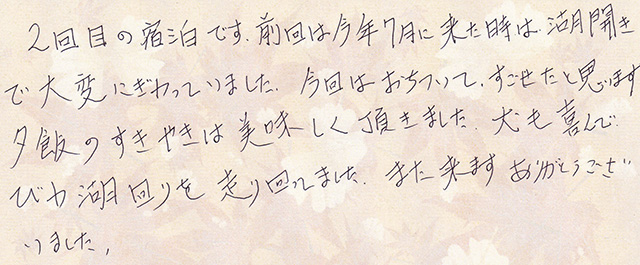 2回目の宿泊です.前回は今年7月に来た時は.湖開き
で大変にぎわっていました.今回はおちついて.すごせたと思います
夕飯のすきやきは美味しく頂きました.犬も喜んで
びわ湖回りを走り回ってました.また来ます ありがとうござ
いました,